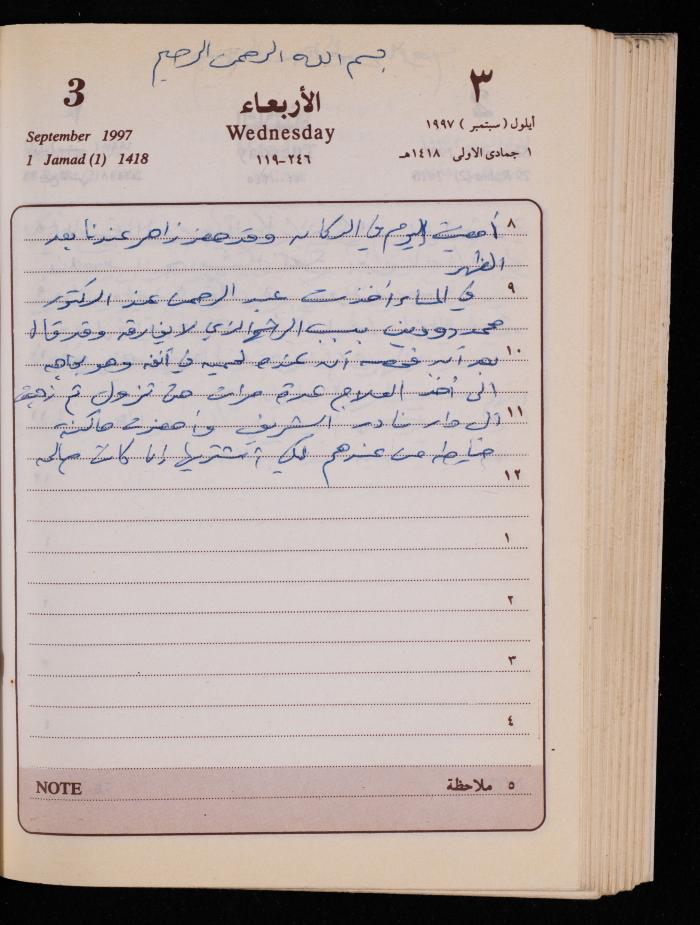 بسم الله الرحمن الرحيم
3
الأربعاء
٣
September 1997
Wednesday
أيلول (سبتمبر) ١٩٩٧
1 Jamad (1) 1418
٢٤٦-١١٩
١ جمادى الاولى ١٤١٨هـ
٨
أمضيت اليوم في الدكان وقد حضر زاهر عندنا بعد
الظهر
٩
في المساء أخذت عبد الرحمن عند الدكتور
محمد دودين بسبب الرشح الذي لا يفارقه وقد قال
١٠
بعد أن فحصه أن عنده لحمية في أنفه وهو بحاجة
الى أخذ العلاج عدة مرات حتى تزول ثم ذهبت
١١
الى دار نادر الشريف وأحضرت ماكنة
خياطة من عندهم لكي أشتريها إذا كانت صالحة
١٢
١
٢
٣
٤
NOTE
٥ ملاحظة